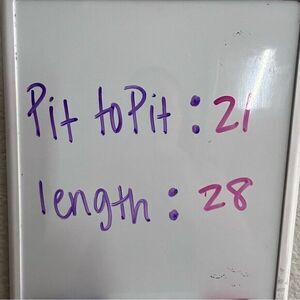 Pit to Pit : 21
length : 28